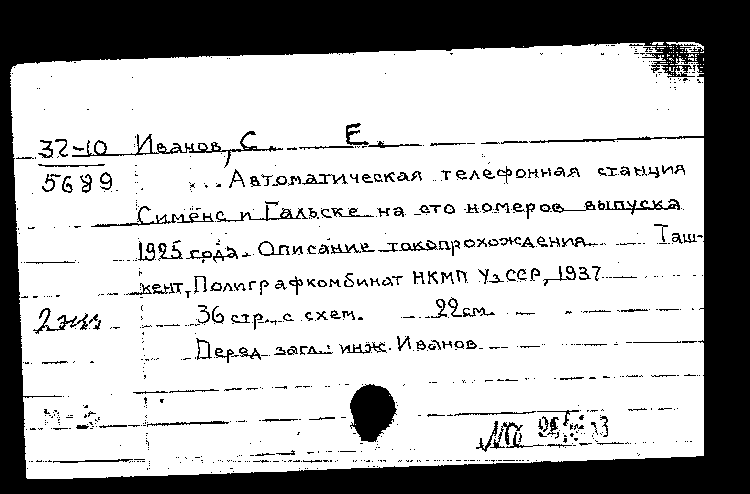 32-10 Иванов, С. Е.
5689 ...Автоматическая телефонная станция
Сименс и Гальске на сто номеров выпуска
1925 года. Описание токопрохождения Таш-
кент, Полиграфкомбинат НКМП УзССР, 1937
2 экз 36 стр. с схем. 22 см.
Перед загл.: инж. Иванов